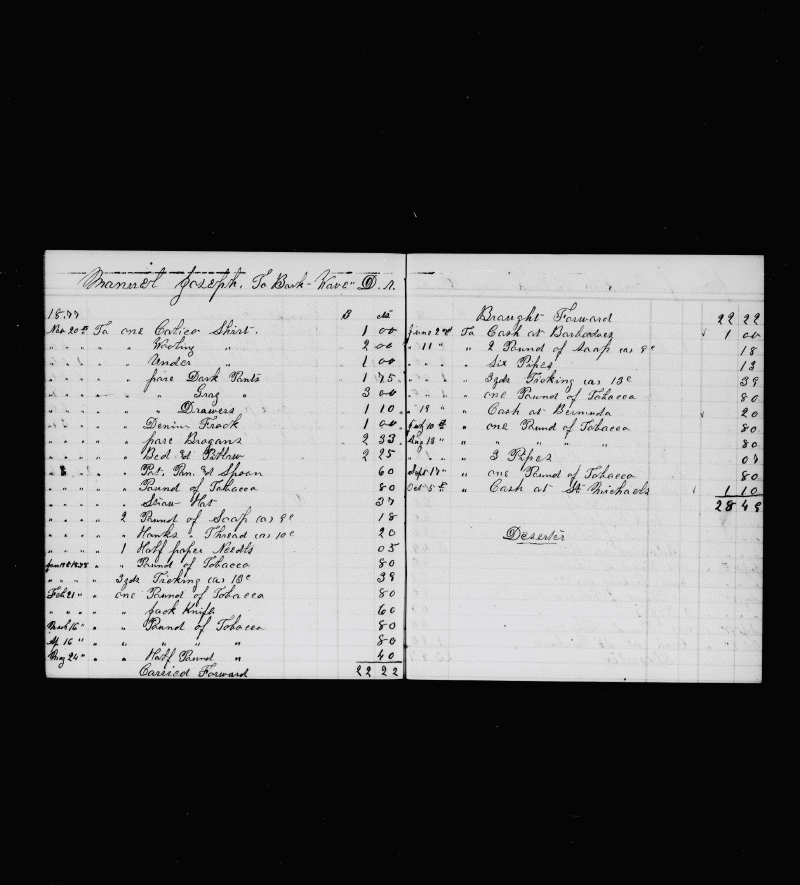 Manuel Joseph. To Bark "Wave" Dr.
1877 $ cts
Nov 20th To one Calico Shirt. 1 00
" " " " Wooling " 2 00
" " " " Under " 1 00
" " " " pare Dark Pants 1 75
" " " " " Gray " 3 00
" " " " " Drawers 1 10
" " " " Denim Frock 1 00
" " " " pare Brogans 2 33
" " " " Bed & Pillow 2 25
" " " Pot. Pan. & Spoon 60
" " " " Pound of Tobacco 80
" " " " Straw Hat 37
" " " 2 Pound of Soap (a) 9c 18
" " " " Hanks " Thread (a) 10c 20
" " " 1 Half paper Needls 05
1878 " " Pound of Tobacco 80
" " " " 3yds Ticking (a) 13c 39
Feb 21 " " one Pound of Tobacco 80
" " " " Jack Knife 60
March 16 " " " Pound of Tobacco 80
Ap 16 " " " " " " 80
May 24 " " " Half Pound " 40
Carried Forward 22 22
Braught Forward 22 22
June 2nd To Cash at Barbadoes 1 00
" 11 " " 2 Pound of Soap (a) 9c 18
" " " Six Pipes 13
" " " 3yds Ticking (a) 13c 39
" " " one Pound of Tobacco 80
" 19 " " Cash at Bermuda 20
July 10th " one Pound of Tobacco 80
Aug 13 " " " " " " 80
" " " 3 Pipes 07
Sept 17 " " one Pound of Tobacco 80
Oct 5th " Cash at St Michaels 1 10
28 49
Deserter